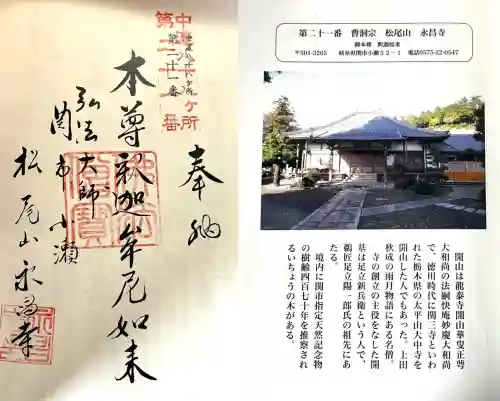 奉納
中濃八十八ヶ所
第二十一番
第二十一番
本尊釈迦牟尼如来
弘法大師
関市小瀬
松尾山永昌寺
第二十一番 曹洞宗 松尾山 永昌寺
御本尊 釈迦如来
〒501-3265 岐阜県関市小瀬52−1 電話0575-22-0547
開山は龍泰寺開山華叟正蕚
大和尚の法嗣快庵妙慶大和尚
で、徳川時代に関三寺といわ
れた栃木県の太平山大中寺を
開山した人でもあった。上田
秋成の雨月物語にある名僧。
寺の創立の主役をなした開
基は足立新兵衛という人で、
鵜匠足立陽一郎氏の祖先にあ
たる。
境内に関市指定天然記念物
の樹齢四百七十年を推察され
るいちょうの木がある。